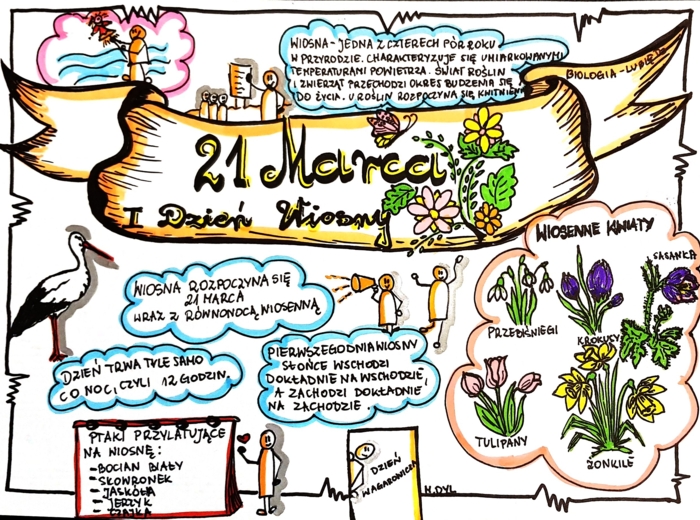 WIOSNA - JEDNA Z CZTERECH PÓR ROKU
W PRZYRODZIE. CHARAKTERYZUJE SIĘ UMIARKOWANYMI
TEMPERATURAMI POWIETRZA. ŚWIAT ROŚLIN
I ZWIERZĄT PRZECHODZI OKRES BUDZENIA SIĘ
DO ŻYCIA. U ROŚLIN ROZPOCZYNA SIĘ KWITNIENIE
BIOLOGIA - LUBIĘ TO
21 Marca
I Dzień Wiosny
WIOSNA ROZPOCZYNA SIĘ
21 MARCA
WRAZ Z RÓWNONOCĄ WIOSENNĄ
DZIEŃ TRWA TYLE SAMO
CO NOC, CZYLI 12 GODZIN.
PIERWSZEGO DNIA WIOSNY
SŁOŃCE WSCHODZI
DOKŁADNIE NA WSCHODZIE,
A ZACHODZI DOKŁADNIE
NA ZACHODZIE.
WIOSENNE KWIATY
SASANKA
PRZEBIŚNIEGI
KROKUSY
TULIPANY
ŻONKILE
PTAKI PRZYLATUJĄCE
NA WIOSNĘ:
- BOCIAN BIAŁY
- SKOWRONEK
- JASKÓŁKA
- JERZYK
- CZAJKA
DZIEŃ
WAGAROWICZA
M.DYL